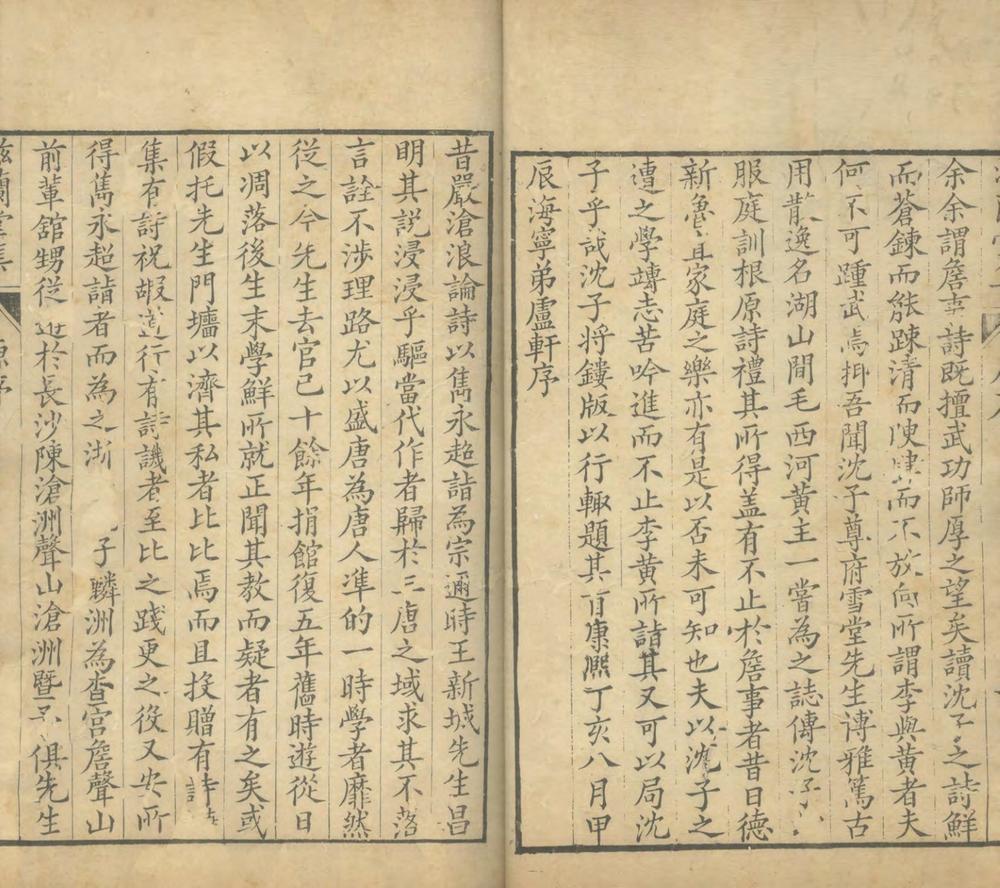 余余謂詹事詩既擅武功師厚之望矣讀沈子之詩鮮
而蒼鍊而能踈清而腴肆而不放向所謂李與黃者夫
何不可踵武焉抑吾聞沈子尊府雪堂先生博雅篤古
用散逸名湖山間毛西河黃主一嘗為之誌傳沈子
服庭訓根原詩禮其所得蓋有不止於詹事者昔日德
新魯直家庭之樂亦有是以否未可知也夫以沈子之
遭之學竱志苦吟進而不止李黃所詣其又可以局沈
子乎哉沈子将鏤版以行輙題其首康熈丁亥八月甲
辰海寧弟盧軒序
昔嚴滄浪論詩以雋永超詣為宗邇時王新城先生昌
明其說浸浸乎驅當代作者歸於三唐之域求其不落
言詮不涉理路尤以盛唐為唐人凖的一時學者靡然
從之今先生去官已十餘年捐館復五年舊時遊從日
以凋落後生末學鮮所就正聞其教而疑者有之矣或
假托先生門墻以濟其私者比比焉而且投贈有詩
集有詩祝嘏送行有詩譏者至比之踐更之役又安所
得雋永超詣者而為之浙 子轔洲為查宮詹聲山
前輩舘甥從逰於長沙陳滄洲聲山滄洲暨 俱先生